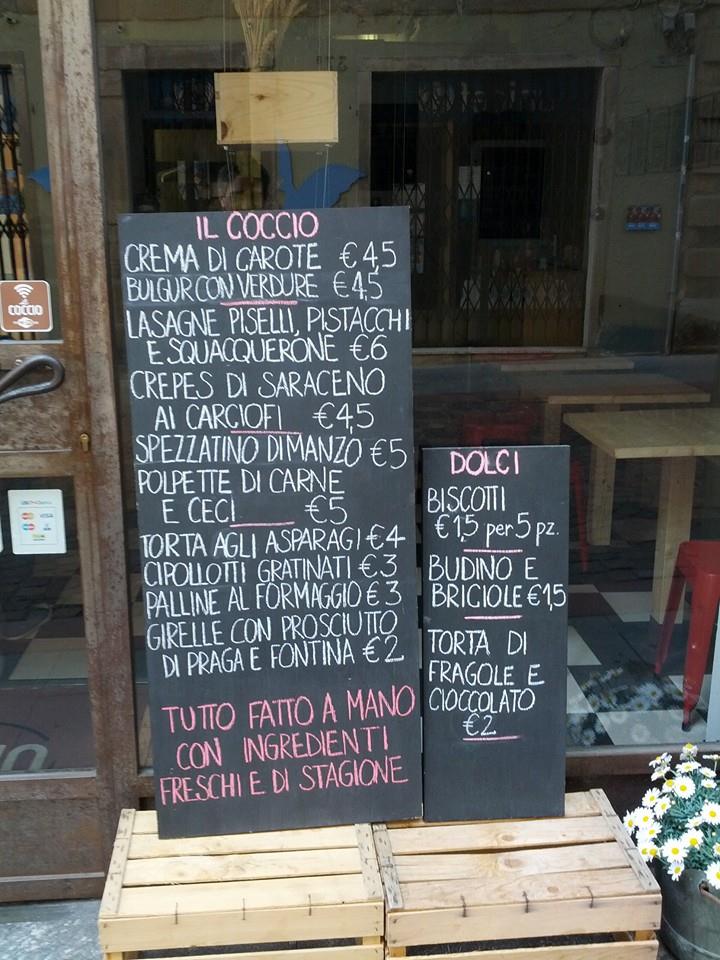 IL COCCIO
CREMA DI CAROTE €4,5
BULGUR CON VERDURE €4,5
LASAGNE PISELLI, PISTACCHI
E SQUACQUERONE €6
CREPES DI SARACENO
AI CARCIOFI €4,5
SPEZZATINO DI MANZO €5
POLPETTE DI CARNE
E CECI €5
TORTA AGLI ASPARAGI €4
CIPOLLOTTI GRATINATI €3
PALLINE AL FORMAGGIO €3
GIRELLE CON PROSCIUTTO
DI PRAGA E FONTINA €2
TUTTO FATTO A MANO
CON INGREDIENTI
FRESCHI E DI STAGIONE
DOLCI
BISCOTTI
€1,5 per 5 pz.
BUDINO E
BRICIOLE €1,5
TORTA DI
FRAGOLE E
CIOCCOLATO
€2
COCCIO
VISA